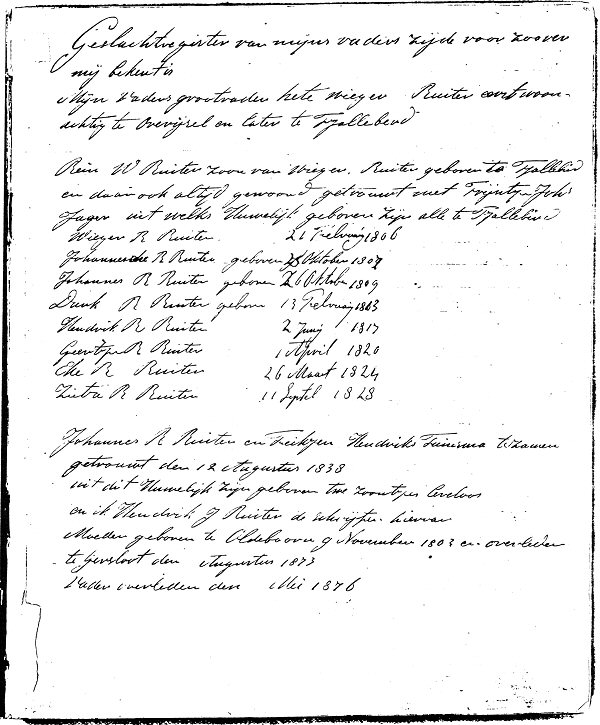 Geslachtregister van mijns vaders zijde voor zoover
mij bekent is
Mijn Vaders grootvader hete Wieger Ruiter
te Overijsel en later te Tjallebird
Rein W Ruiter zoon van Wieger Ruiter geboren te Tjallebird
en daar ook altijd gewoond getrouwt met Trijntje Joh's
Jager uit welks Huwelijk geboren zijn alle te Tjallebird
Wieger R Ruiter 21 Februarij 1806
R Ruiter geboren Oktober 1807
Johannes R Ruiter geboren 26 Oktober 1809
R Ruiter geboren 13 Februarij
Hendrik R Ruiter 2 Junij 1817
Geertje R Ruiter 1 April 1820
Eke R Ruiter 26 Maart 1824
R Ruiter 11 Septel 1828
Johannes R Ruiter en Feikjen Hendriks te zamen
getrouwt den 12 Augustus 1838
uit dit Huwelijk zijn geboren twe zoontjes leveloos
en ik Hendrik J Ruiter de schrijfer hiervan
Moeder geboren te Oldeboorn 9 November 1803 en overleden
te Gersloot den Augustus 1873
Vader overleden den Mei 1876